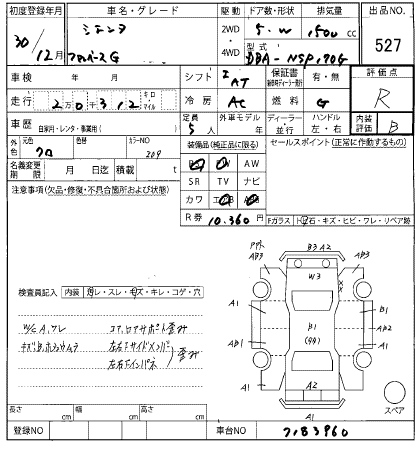 初度登録年月
車名・グレード
駆動
ドア数・形状
排気量
出品NO.
30
12月
シエンタ
ファンベースG
2WD
4WD
5・W
1500 cc
型式
DBA-NSP170G
527
車検 年 月
シフト
IAT
保証書
有・無
評価点
R
走行
2万0千312
キロ
マイル
冷房
AC
燃料
G
車歴
自家用・レンタ・事業用( )
定員
5人
外車モデル
年
ディーラー
・並行
ハンドル
左・右
内装
評価
B
外色
元色
クロ
色替
カラーNO
209
装備品(純正品に限る)
セールスポイント(正常に作動するもの)
PS PW AW
名義変更
期限
月 日迄
積載
t
SR TV ナビ
注意事項(欠品・修復・不具合箇所および状態)
カワ エアB ABS
R券
10.360 円
Fガラス
トビ石・キズ・ヒビ・ワレ・リペア跡
検査員記入
内装
ヨゴレ・スレ・キズ・キレ・コゲ・穴
W/C A, ワレ
コア, ロアサポート歪み
左右Fサイドメンバー
左右Fインパネ
歪み
AB3
B3 A2
AB3
W3
A1
B1
AB1
B1
(99)
AB2
A1
A1
A2
A1
スペア
長さ
cm
幅
cm
高さ
cm
登録NO
車台NO
7183960